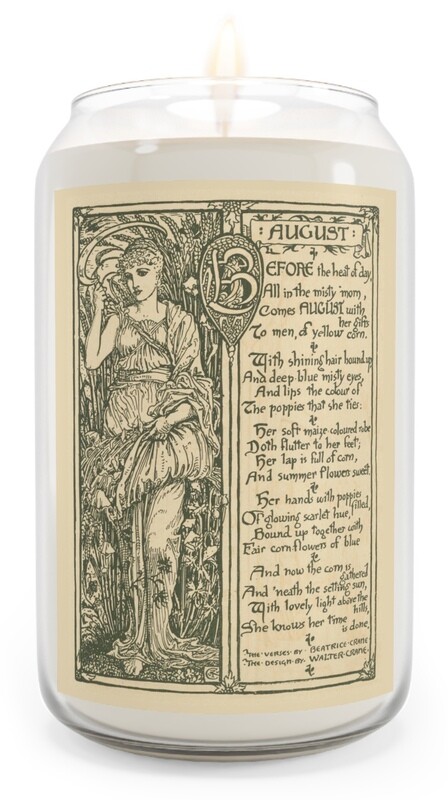 : AUGUST :
BEFORE the heat of day,
All in the misty morn,
Comes AUGUST with
her gifts
To men, of yellow corn.
With shining hair bound up
And deep-blue misty eyes,
And lips the colour of
The poppies that she ties:
Her soft maize-coloured robe
Doth flutter to her feet;
Her lap is full of corn,
And summer flowers sweet.
Her hands with poppies
filled,
Of glowing scarlet hue,
Bound up together with
Fair cornflowers of blue
And now the corn is
gathered
And 'neath the setting sun,
With lovely light above the
hills,
She knows her time
is done.
THE · VERSES · BY · BEATRICE · CRANE
THE · DESIGN · BY · WALTER · CRANE ·